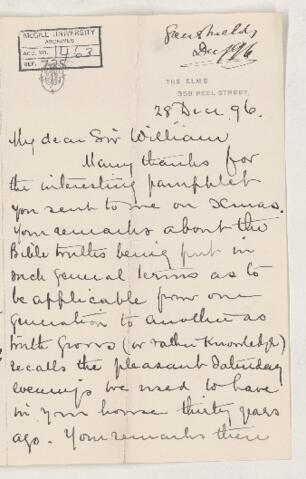 McGILL UNIVERSITY
ARCHIVES
ACC. NO. 1463
REF.
Decr 96
THE ELMS
358 PEEL STREET,
28 Decr 96.
My dear Sir William
Many thanks for
the interesting pamphlet
you sent to me on Xmas.
Your remarks about the
Bible truths being put in
such general terms as to
be applicable from one
generation to another as
truth grows (or rather Knowledge)
recalls the pleasant Saturday
evenings we used to have
in your house thirty years
ago. Your remarks then